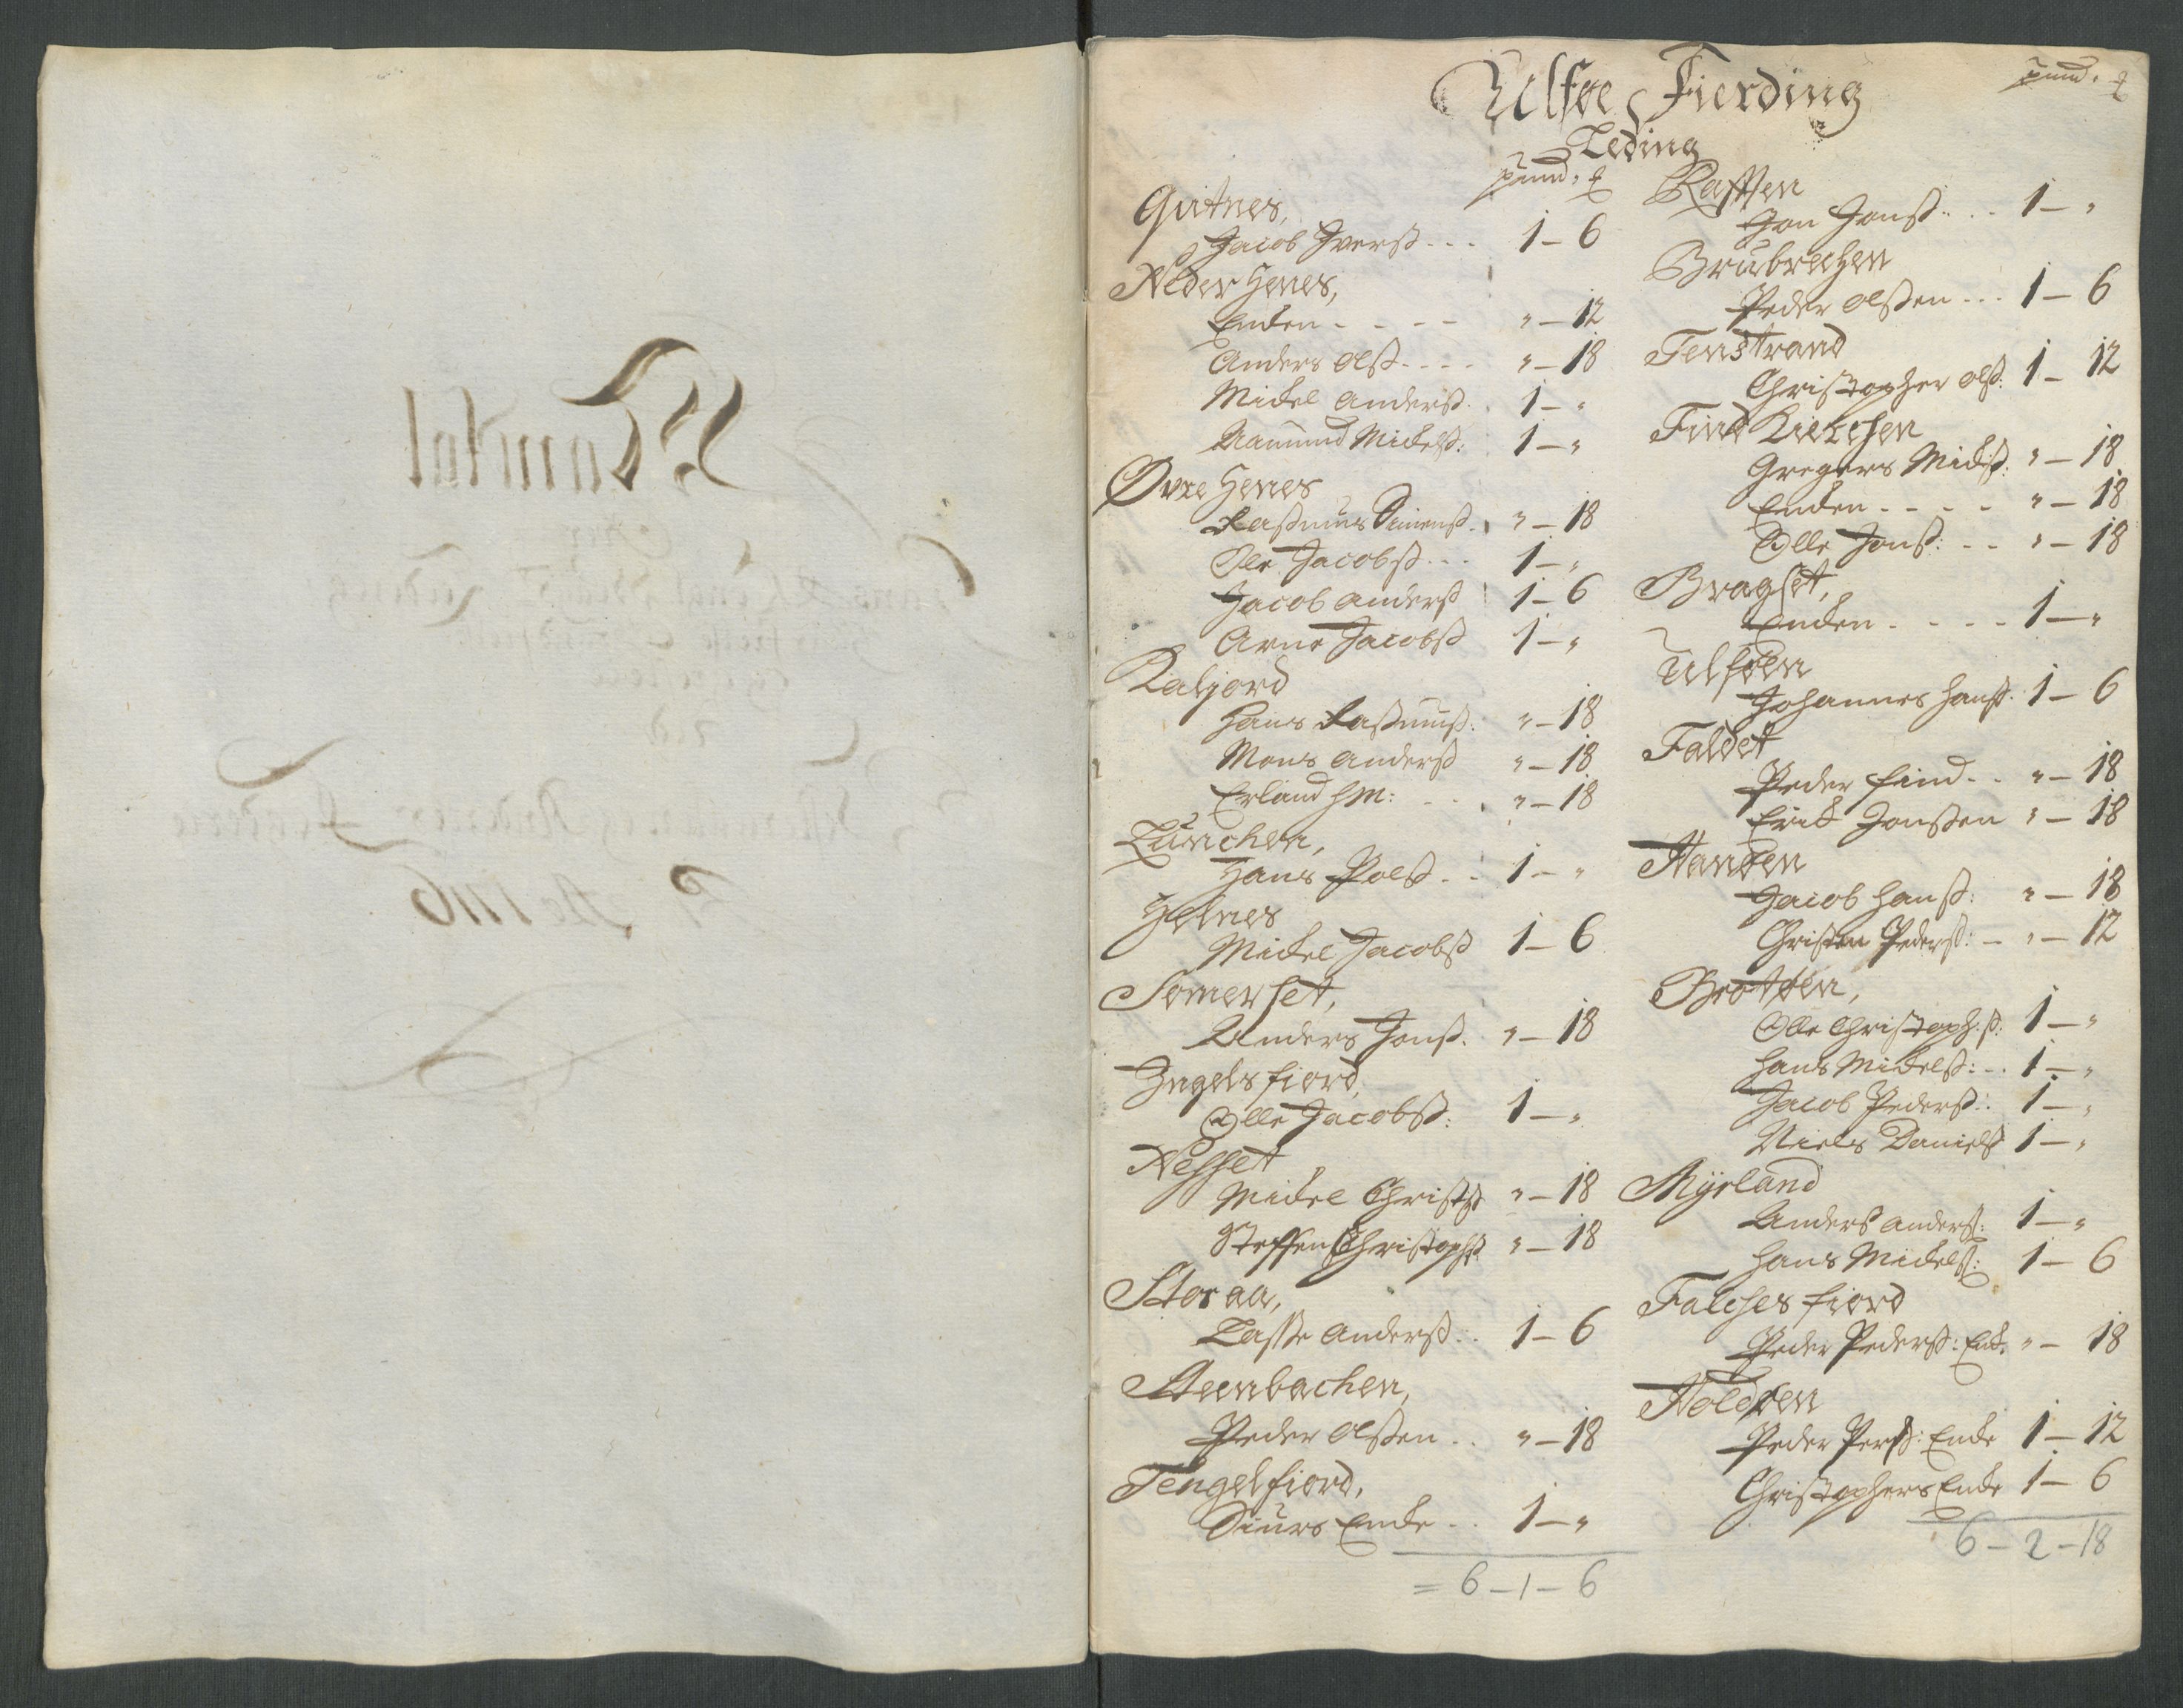 Ulføe Fierding
Teding
pund. ℔
Guitnes,
Jacob Iverß. - - 1 - 6
Neder Henes,
Enken - - - - " - 12
Anders Olß - - - - " - 18
Mickel Anderß. 1 - "
Aamund Mickelß: 1 - "
Øvre Henes
Raßmus Simenß. " - 18
Ole Jacobß - - - 1 - "
Jacob Anderß 1 - 6
Arne Jacobß 1 - "
Kaljord
Hans Raßmuß: " - 18
Mons Anderß " - 18
Erland HM: - - . " - 18
Tünchen,
Hans Polß - - 1 - "
Helnes
Mickel Jacobß 1 - 6
Somerset,
Anders Jonß. " - 18
Ingelsfiord,
Olle Jacobß: 1 - "
Nesset
Mickel Christß " - 18
Steffen Christophß " - 18
Storaa,
Lasse Anderß: . 1 - 6
Steenbachen,
Peder Olßen . . " - 18
Tengelfiord,
Siurs Enke - - 1 - "
= 6 - 1 - 6
pund. ℔
Raften
Jon Jonß - - - 1 - "
Brubrechen
Peder Olßen - - - 1 - 6
Fenstrand
Christopher Olß: 1 - 12
Find Kierchen
Gregers Mickß: " - 18
Enken - - - - " - 18
Olle Jonß: - - " - 18
Bragset,
Enken - - - - 1 - "
Ulføen
Johannes Hanß. 1 - 6
Faldet
Peder Find - - " - 18
Erick Jonßen " - 18
Hanøen
Jacob Hanß: " - 18
Christen Pederß: - " - 12
Brotøen,
Olle Christoph:ß: 1 - "
Hans Mickelß: - - 1 - "
Jacob Pederß: . 1 - "
Niels Danielß 1 - "
Myrland
Anders Anderß: 1 - "
Hans Mickelß: 1 - 6
Falchesfiord
Peder Pederß: Enk. " - 18
Holdøen
Peder Perß: Enke 1 - 12
Christophers Enke 1 - 6
6 - 2 - 18